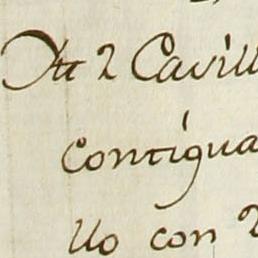 Itt 2 Cavill
contigua
llo con 2